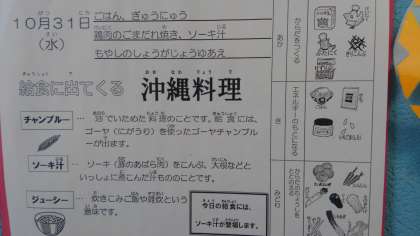 10月31日
（水）
ごはん、ぎゅうにゅう
鶏肉のごまだれ焼き、ソーキ汁
もやしのしょうがじょうゆあえ
給食に出てくる 沖縄料理
チャンプルー
いためた料理のことです。給食には、
ゴーヤ（にがうり）を使ったゴーヤチャンプル
ーが出ます。
ソーキ汁
ソーキ（豚のあばら肉）をこんぶ、大根などと
いっしょに煮こんだ汁もののことです。
ジューシー
炊きこみご飯や雑炊という
意味です。
今日の給食には、
ソーキ汁が登場します。
あか
からだをつくる
き
エネルギーのもとになる
みどり
からだのちょうしを
ととのえる